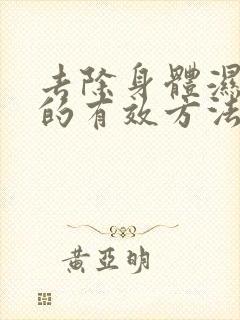 去除身體濕
的有效方法
黃亞明